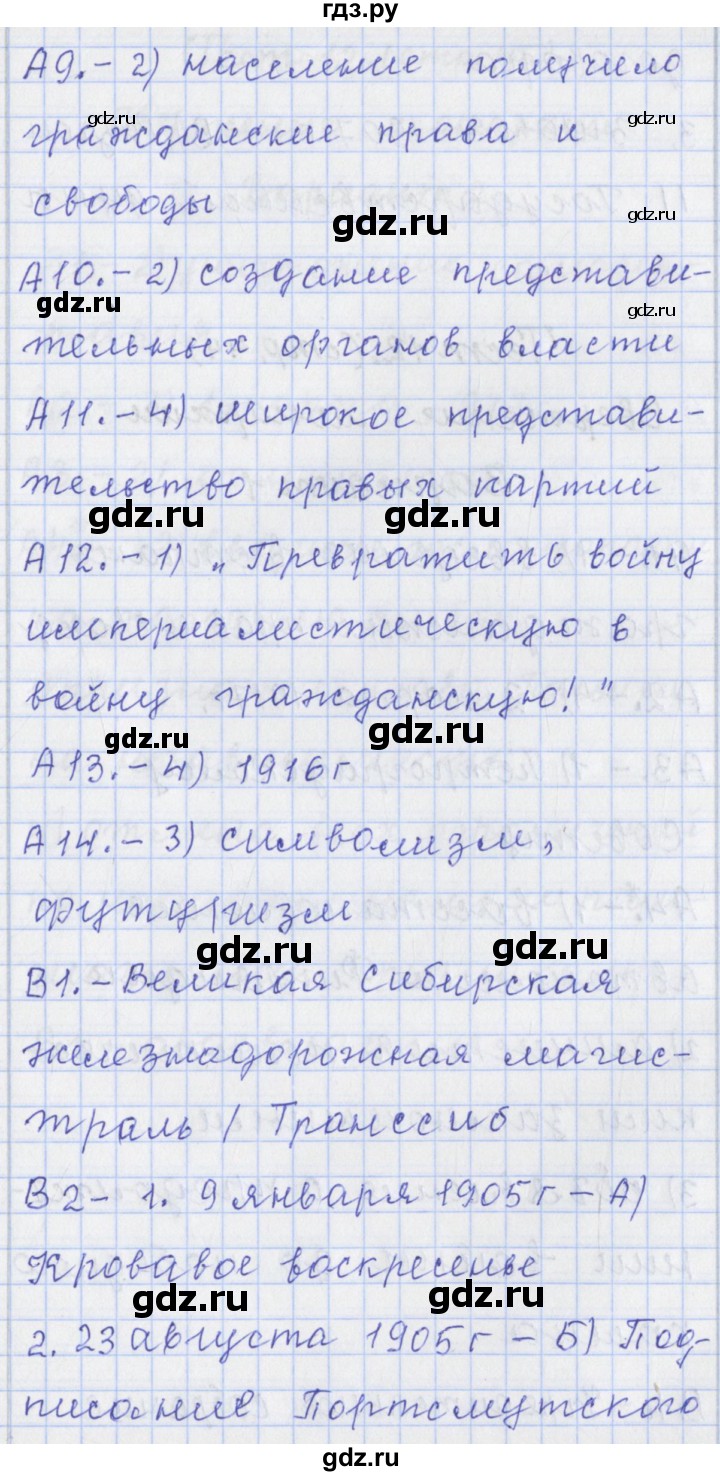 гдз.ру
А9.- 2) население получило
гражданские права и
свободы
А10.- 2) создание представи-
тельных органов власти
А11.- 4) широкое представи-
тельство правых партий
А12.- 1) „Превратить войну
империалистическую в
войну гражданскую!"
А13.- 4) 1916г
А14.- 3) символизм,
футуризм
В1.- Великая Сибирская
железнадорожная магис-
траль / Транссиб
В2- 1. 9 января 1905г - А)
Кровавое воскресенье
2. 23 августа 1905г - Б) Под-
писание Портсмутского
gdz.ru